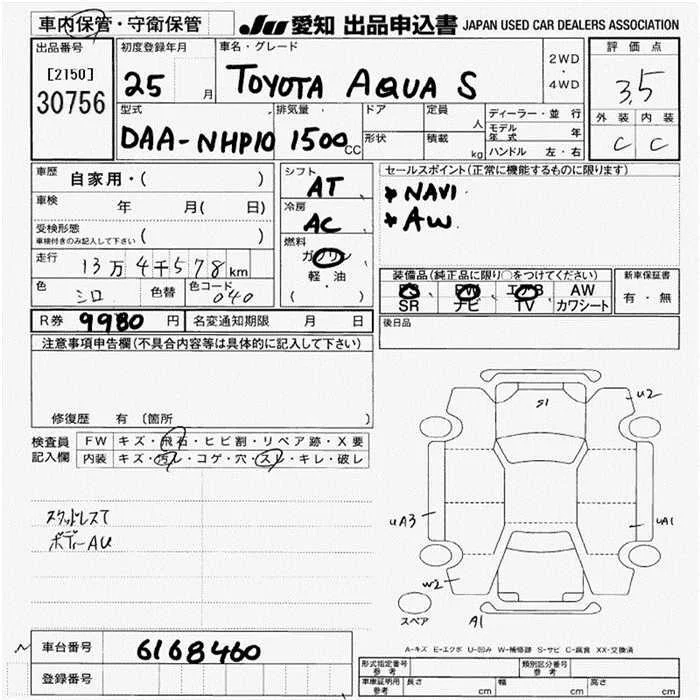 車内保管・守衛保管
JU 愛知 出品申込書 JAPAN USED CAR DEALERS ASSOCIATION
出品番号 [2150] 30756
初度登録年月 25 月
車名・グレード TOYOTA AQUA S
2WD ・ 4WD
評価点 3.5
外装 内装
C C
型式 DAA-NHP10
排気量 1500 CC
ドア
形状
定員 人
積載 kg
ディーラー・並行
モデル年式 年
ハンドル 左・右
車歴 自家用・( )
車検 年 月( 日)
受検形態
車検付きのみ記入して下さい ( )
走行 13万4千578km
色 シロ 色替 色コード 040
シフト AT
冷房 AC
燃料 ガソリン
軽・油
( )
セールスポイント(正常に機能するものに限ります)
*NAVI
*AW
装備品(純正品に限り○をつけてください)
PS、 PW、 エアB AW
SR ナビ TV カワシート
新車保証書
有・無
後日品
R券 9980 円 名変通知期限 月 日
注意事項申告欄(不具合内容等は具体的に記入して下さい)
修復歴 有 〔箇所 〕
検査員記入欄
FW キズ・飛石・ヒビ割・リペア跡・X要
内装 キズ・汚レ・コゲ・穴・スレ・キレ・破レ
スタッドレスT
ボディーAU
S1
U2
UA3
UA1
W2
A1
スペア
A-キズ E-エクボ U-凹み W-補修跡 S-サビ C-腐食 XX-交換済
車台番号 6168460
登録番号
形式指定番号 参考
類別区分番号 参考
車庫証明用 参考 長さ cm 幅 cm 高さ cm